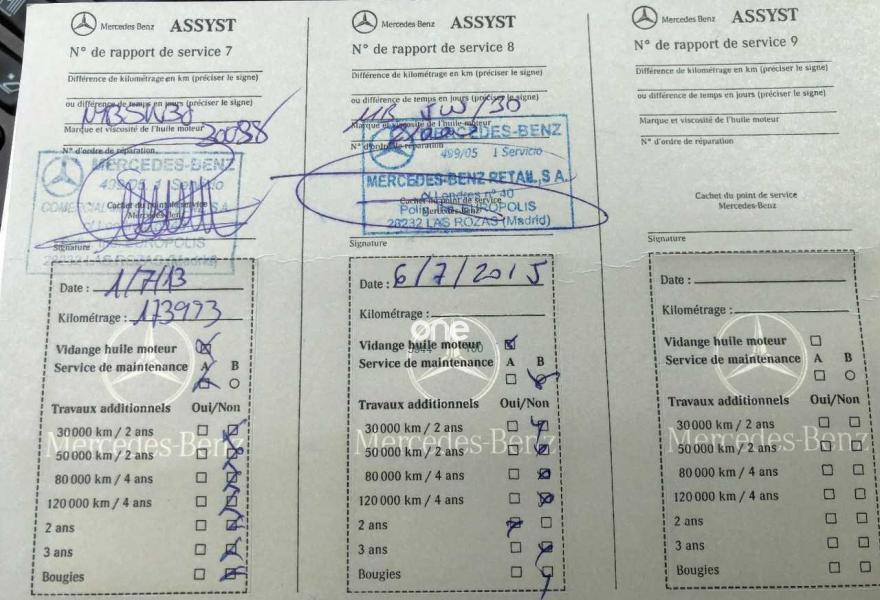 Mercedes-Benz ASSYST
N° de rapport de service 7
Différence de kilométrage en km (préciser le signe)
ou différence de temps en jours (préciser le signe)
Marque et viscosité de l'huile moteur
30098
N° d'ordre de réparation
MERCEDES-BENZ
499/05 1 Servicio
COMERCIAL
Cachet du point de service
Mercedes-Benz
EUROPOLIS
Signature
28232 LAS ROZAS (Madrid)
Date : 1/7/13
Kilométrage : 173993
Vidange huile moteur
Service de maintenance A B
Travaux additionnels Oui/Non
30 000 km / 2 ans
Mercedes-Benz
50 000 km / 2 ans
80 000 km / 4 ans
120 000 km / 4 ans
2 ans
3 ans
Bougies
Mercedes-Benz ASSYST
N° de rapport de service 8
Différence de kilométrage en km (préciser le signe)
ou différence de temps en jours (préciser le signe)
MB 5W/30
Marque et viscosité de l'huile moteur
MERCEDES-BENZ
N° d'ordre de réparation
499/05 1 Servicio
MERCEDES-BENZ RETAIL, S.A.
C/ Londres nº 40
Cachet du point de service
Mercedes-Benz
EUROPOLIS
28232 LAS ROZAS (Madrid)
Signature
Date : 6/7/2015
Kilométrage :
one
Vidange huile moteur
Service de maintenance A B
Travaux additionnels Oui/Non
30 000 km / 2 ans
Mercedes-Benz
50 000 km / 2 ans
80 000 km / 4 ans
120 000 km / 4 ans
2 ans
3 ans
Bougies
Mercedes-Benz ASSYST
N° de rapport de service 9
Différence de kilométrage en km (préciser le signe)
ou différence de temps en jours (préciser le signe)
Marque et viscosité de l'huile moteur
N° d'ordre de réparation
Cachet du point de service
Mercedes-Benz
Signature
Date :
Kilométrage :
Vidange huile moteur
Service de maintenance A B
Travaux additionnels Oui/Non
30 000 km / 2 ans
Mercedes-Benz
50 000 km / 2 ans
80 000 km / 4 ans
120 000 km / 4 ans
2 ans
3 ans
Bougies